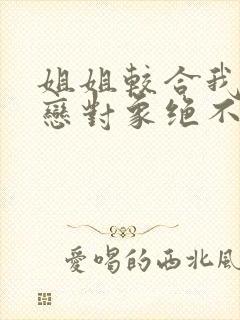 姐姐較合我
戀對象绝不
愛唱的西北風